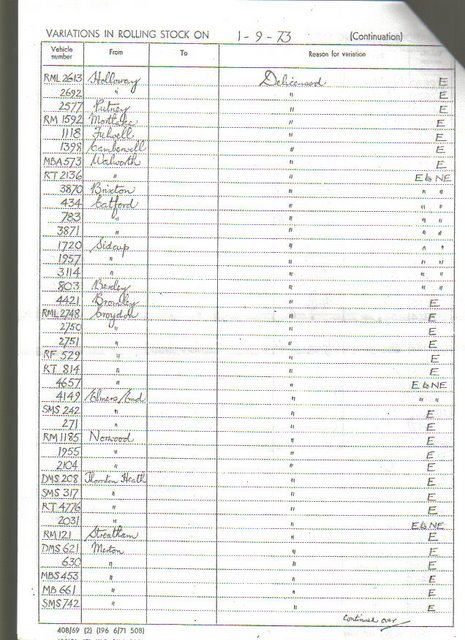 VARIATIONS IN ROLLING STOCK ON 1-9-73 (Continuation)
Vehicle number From To Reason for variation
RML 2613 Holloway Delicensed E
2692 " " E
2577 Putney " E
RM 1592 Mortlake " E
1118 Fulwell " E
1398 Camberwell " E
MBA 573 Walworth " E
RT 2136 " " E to NE
3870 Brixton " " "
434 Catford " " "
783 " " " "
3871 " " " "
1720 Sidcup " " "
1957 " " " "
3114 " " " "
803 Bexley " " "
4421 Bromley " E
RML 2748 Croydon " E
2750 " " E
2751 " " E
RF 529 " " E
RT 814 " " E
4657 " " E to NE
4149 Elmers End " " "
SMS 242 " " E
271 " " E
RM 1185 Norwood " E
1955 " " E
2104 " " E
DMS 208 Thornton Heath " E
SMS 317 " " E
RT 4776 " " E
2031 " " E to NE
RM 121 Streatham " E
DMS 621 Merton " E
630 " " E
MBS 453 " " E
MB 661 " " E
SMS 742 " " E
continued over
408/69 (2) (196 6/71 508)